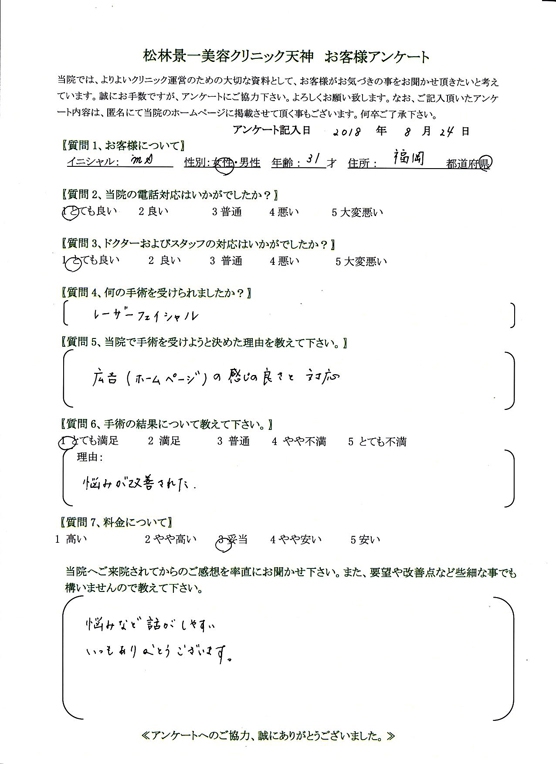 松林景一美容クリニック天神 お客様アンケート
当院では、よりよいクリニック運営のための大切な資料として、お客様がお気づきの事をお聞かせ頂きたいと考え
ています。誠にお手数ですが、アンケートにご協力下さい。よろしくお願い致します。なお、ご記入頂いたアンケ
ート内容は、匿名にて当院のホームページに掲載させて頂く事もございます。何卒ご了承下さい。
アンケート記入日 2018 年 8 月 24 日
【質問1、お客様について】
イニシャル: 性別:女性・男性 年齢:31才 住所: 福岡 都道府県
【質問2、当院の電話対応はいかがでしたか?】
1 とても良い 2 良い 3 普通 4 悪い 5 大変悪い
【質問3、ドクターおよびスタッフの対応はいかがでしたか?】
1 とても良い 2 良い 3 普通 4 悪い 5 大変悪い
【質問4、何の手術を受けられましたか?】
レーザーフェイシャル
【質問5、当院で手術を受けようと決めた理由を教えて下さい。】
広告(ホームページ)の感じの良さと 対応
【質問6、手術の結果について教えて下さい。】
1 とても満足 2 満足 3 普通 4 やや不満 5 とても不満
理由:
悩みが改善された.
【質問7、料金について】
1 高い 2 やや高い 3 妥当 4 やや安い 5 安い
当院へご来院されてからのご感想を率直にお聞かせ下さい。また、要望や改善点など些細な事でも
構いませんので教えて下さい。
悩みなど 話がしやすい
いつもありがとうございます。
≪アンケートへのご協力、誠にありがとうございました。≫